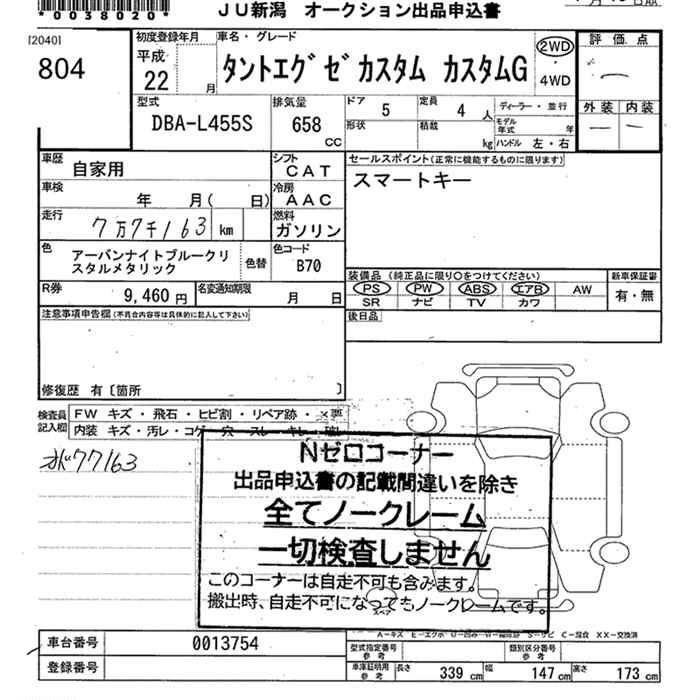 *0038020*
JU新潟 オークション出品申込書
[2040]
804
初度登録年月
平成
22
月
車名・グレード
タントエグゼカスタム カスタムG
2WD
・
4WD
評価点
外装 内装
型式
DBA-L455S
排気量
658
CC
ドア
5
定員
4
人
形状
積載
kg
ディーラー・並行
モデル年式
年
ハンドル 左・右
車歴
自家用
シフト
CAT
セールスポイント(正常に機能するものに限ります)
スマートキー
車検
年 月( 日)
冷房
AAC
走行
7万7千163 km
燃料
ガソリン
色
アーバンナイトブルークリ
スタルメタリック
色替
色コード
B70
装備品 (純正品に限り○をつけてください)
新車保証書
PS PW ABS エアB AW
SR ナビ TV カワ
有・無
R券
9,460 円
名変通知期限
月 日
後日品
注意事項申告欄(不具合内容等は具体的に記入して下さい)
修復歴 有〔箇所 〕
検査員
記入欄
FW キズ・飛石・ヒビ割・リペア跡・×要
内装 キズ・汚レ・コゲ・穴・スレ・キレ・破レ
77163
Nゼロコーナー
出品申込書の記載間違いを除き
全てノークレーム
一切検査しません
このコーナーは自走不可も含みます。
搬出時、自走不可になってもノークレームです。
スペア
A-キズ E-エクボ U-凹み W-補修跡 S-サビ C-腐食 XX-交換済
車台番号
0013754
型式指定番号
参考
類別区分番号
参考
登録番号
車庫証明用
参考
長さ
339 cm
幅
147 cm
高さ
173 cm